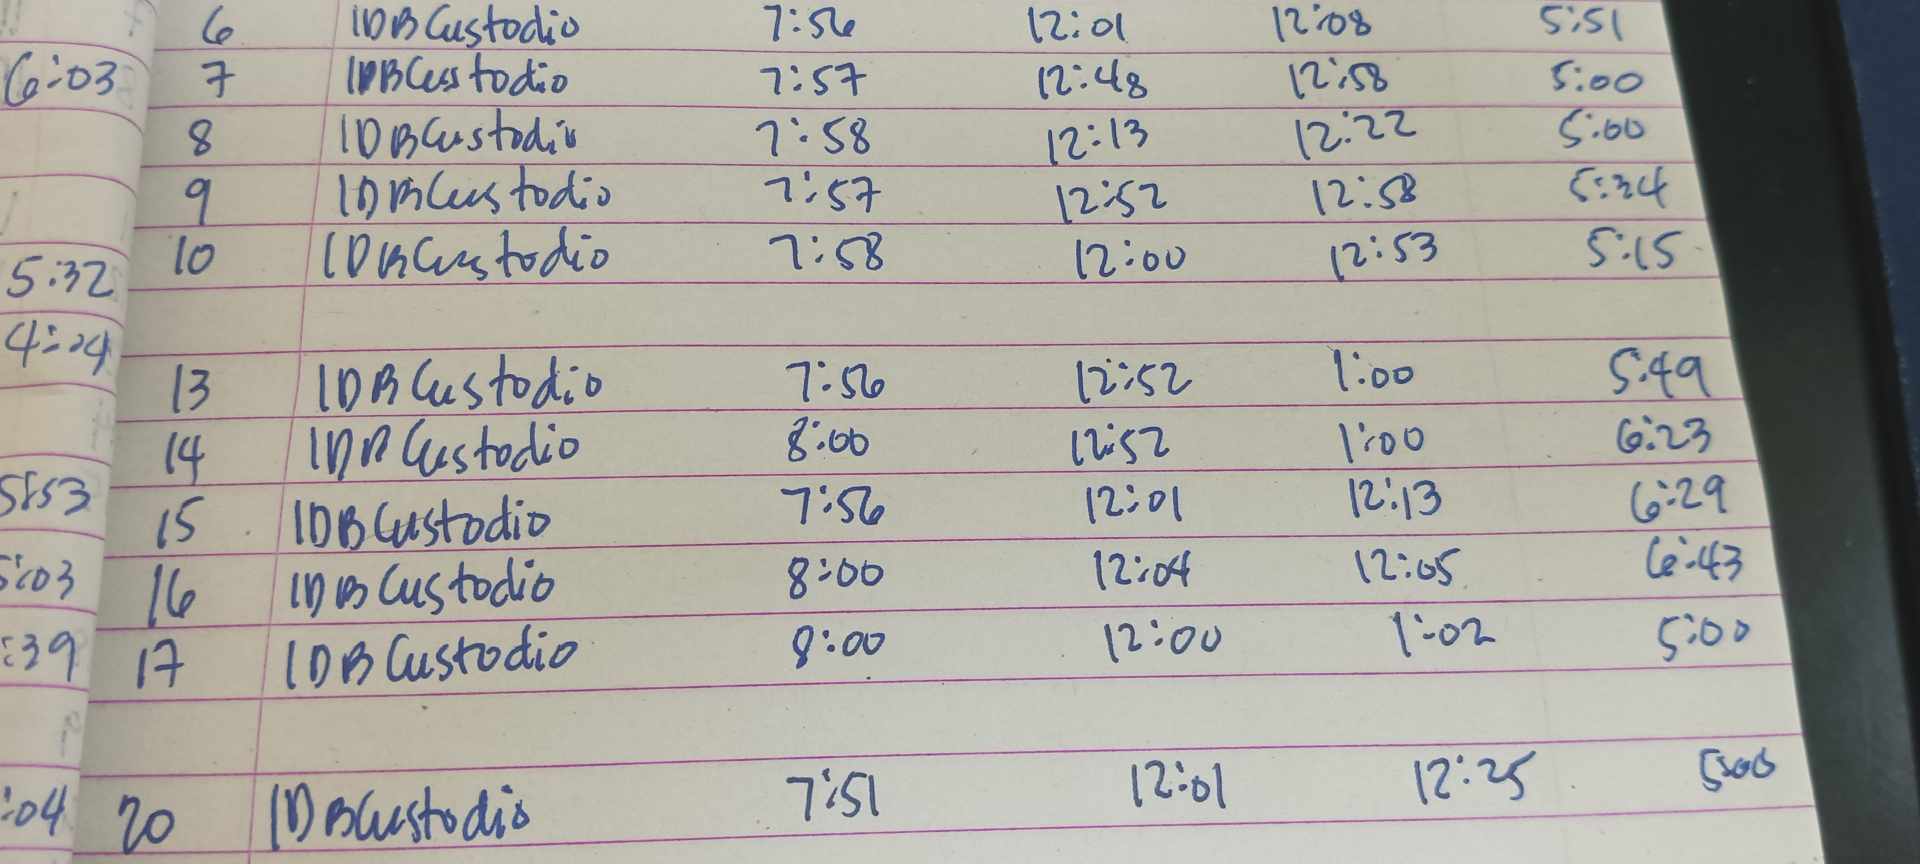 6 IDBCustodio 7:56 12:01 12:08 5:51
6:03 7 IDBCustodio 7:57 12:48 12:58 5:00
8 IDBCustodio 7:58 12:13 12:22 5:00
9 IDBCustodio 7:57 12:52 12:58 5:34
5:32 10 IDBCustodio 7:58 12:00 12:53 5:15
4:24
13 IDBCustodio 7:56 12:52 1:00 5:49
14 IDBCustodio 8:00 12:52 1:00 6:23
5:53 15 IDBCustodio 7:56 12:01 12:13 6:29
5:03 16 IDBCustodio 8:00 12:04 12:05 6:43
:39 17 IDBCustodio 8:00 12:00 1:02 5:00
:04 20 IDBCustodio 7:51 12:01 12:25 5:00